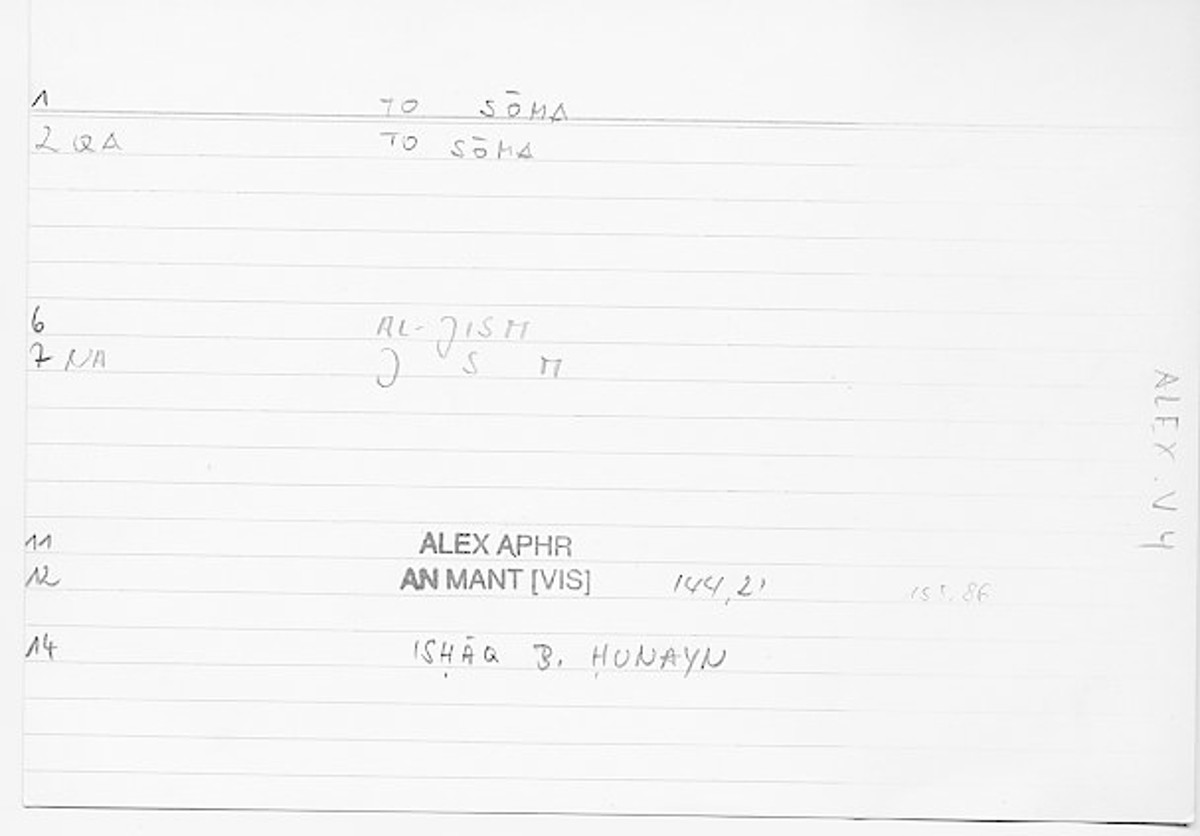 1 TO SŌMA
2 QA TO SŌMA
6 AL-JISM
7 NA J S M
11 ALEX APHR
12 AN MANT [VIS] 144,21
14 ISḤĀQ B. ḤUNAYN
ALEX. V 4